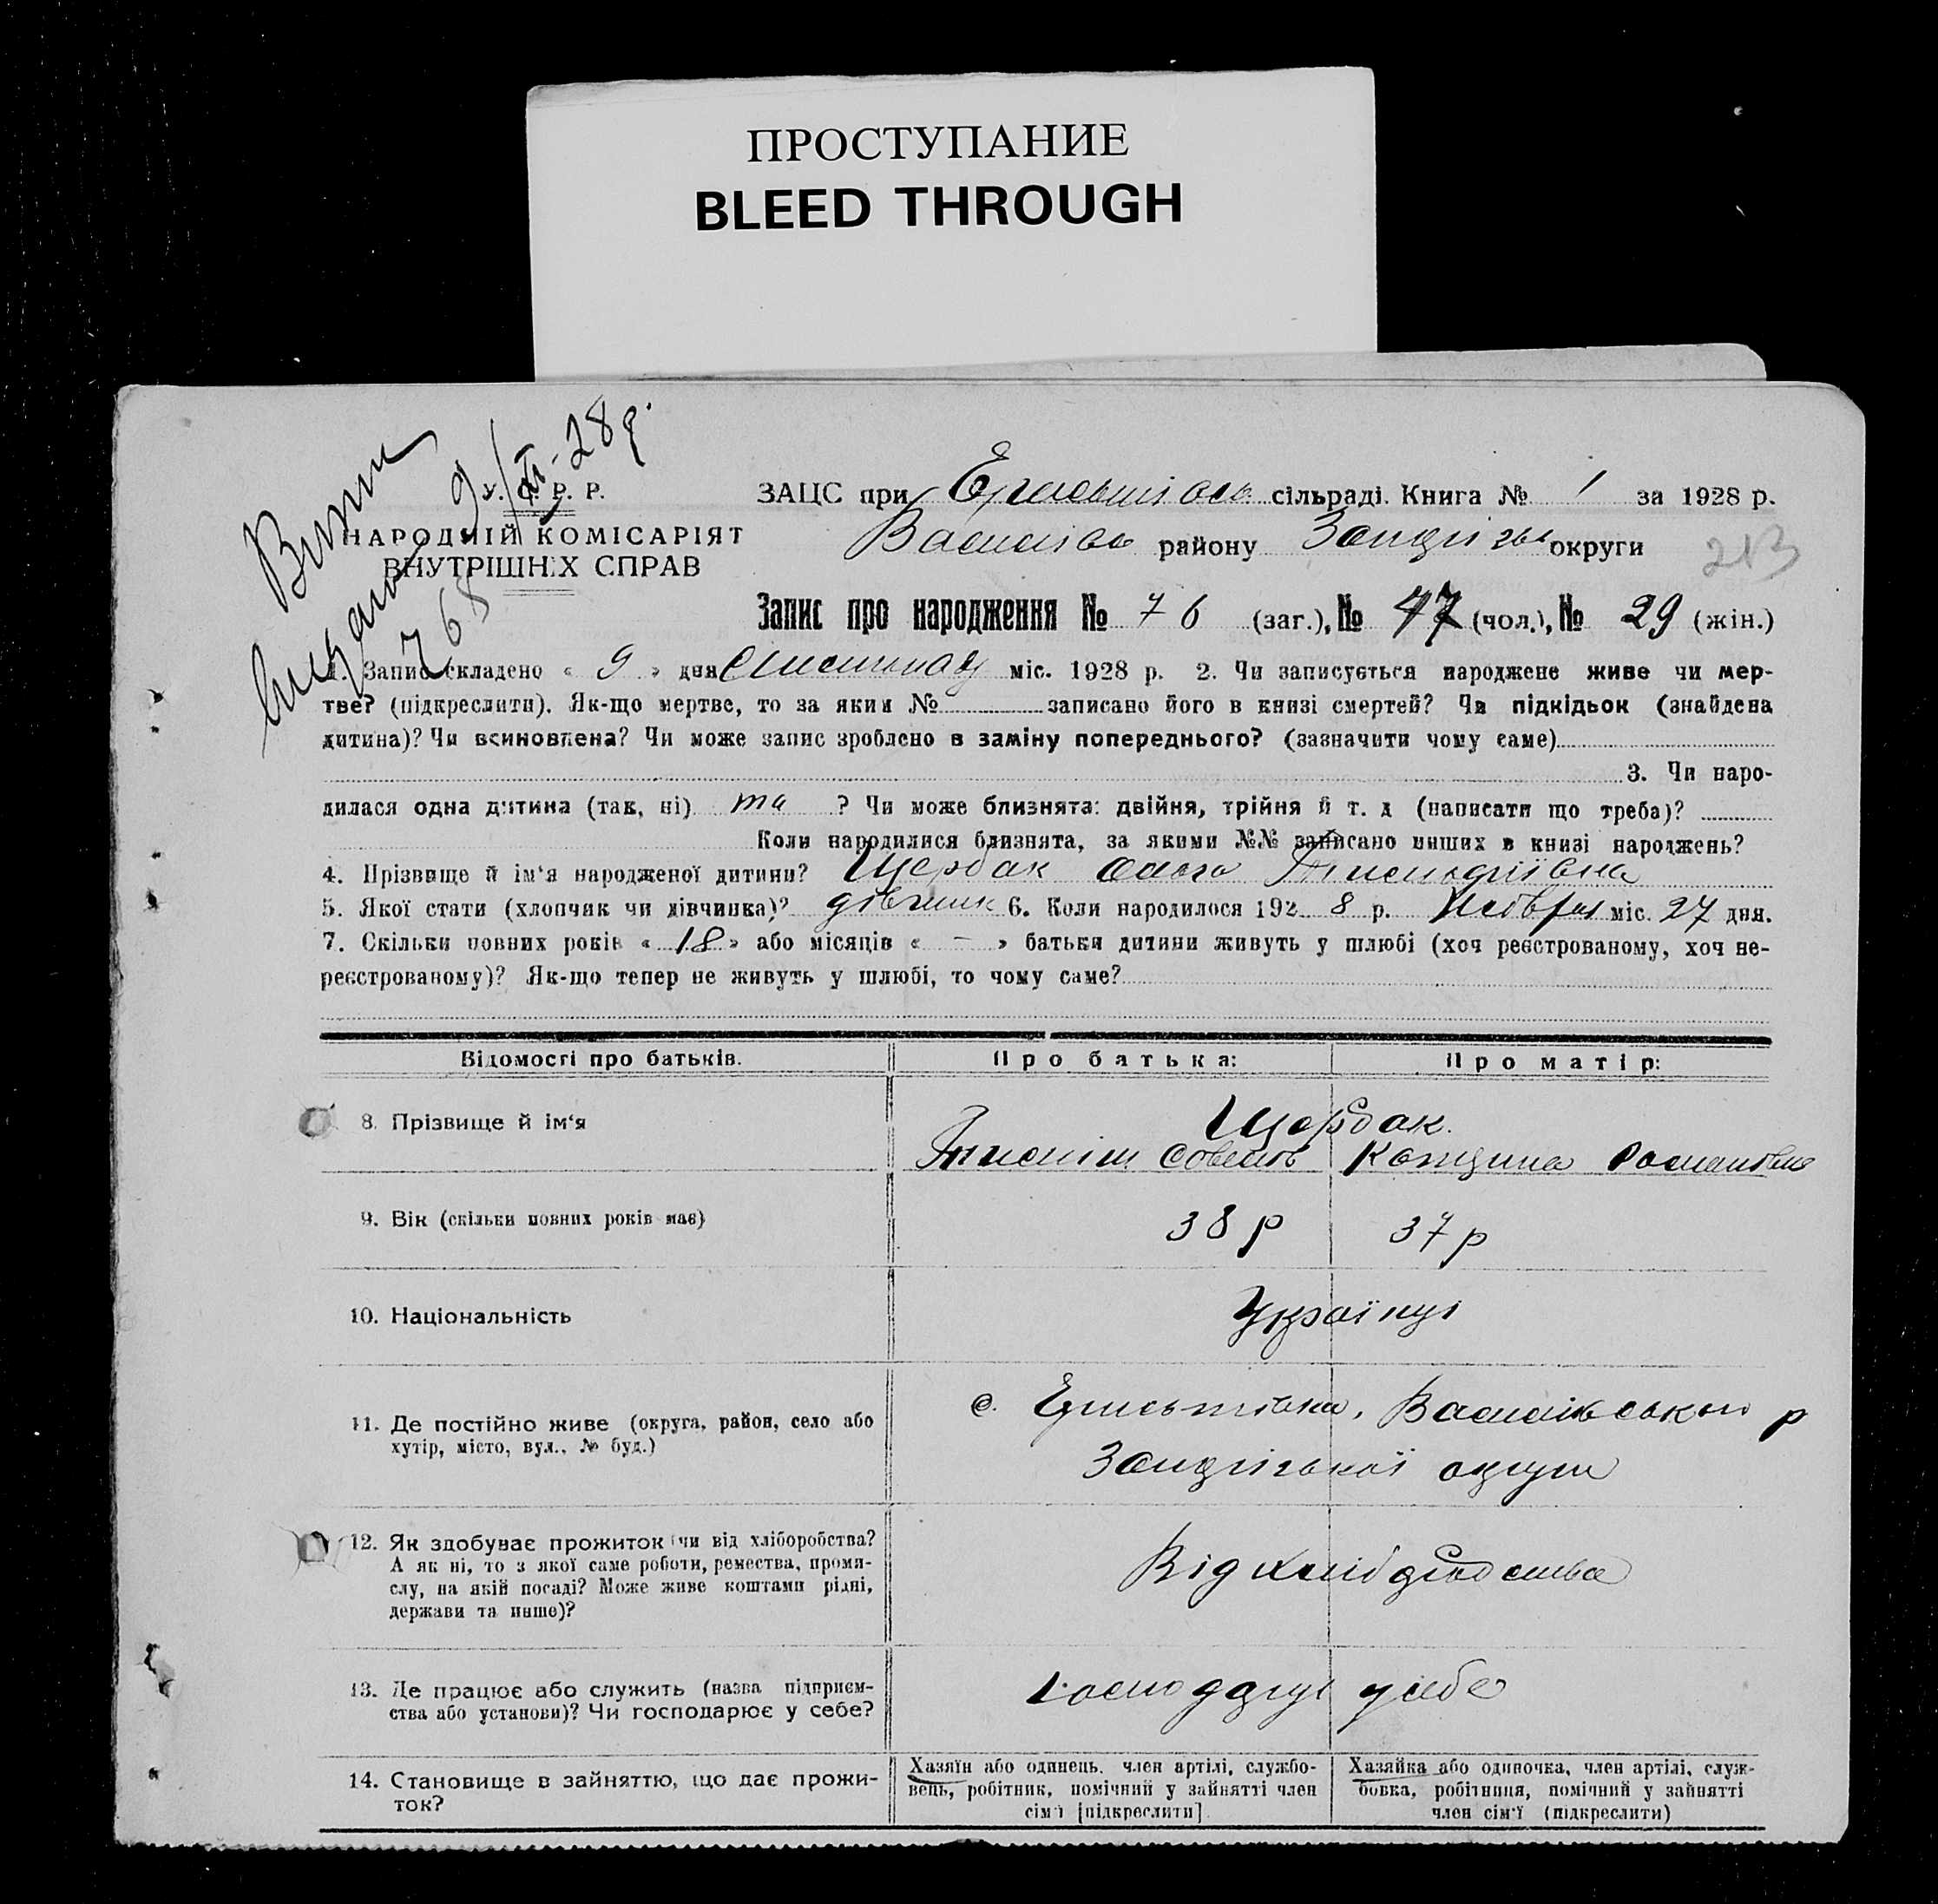 ПРОСТУПАНИЕ
BLEED THROUGH
У. С. Р. Р.
НАРОДНІЙ КОМІСАРІЯТ
ВНУТРІШНІХ СПРАВ
Витяг
видано 9/XI-28р.
768
ЗАЦС при сільраді. Книга № 1 за 1928 р.
Василівс району округи
213
Запис про народження № 76 (заг.), № 47 (чол.), № 29 (жін.)
1. Запис складено « 9 » дня Листопаду міс. 1928 р. 2. Чи записується народжене живе чи мер-
тве? (підкреслити). Як-що мертве, то за яким № записано його в книзі смертей? Чи підкідьок (знайдена
дитина)? Чи всиновлена? Чи може запис зроблено в заміну попереднього? (зазначити чому саме)
3. Чи наро-
дилася одна дитина (так, ні) та ? Чи може близнята: двійня, трійня й т. д (написати що треба)?
Коли народилися близнята, за якими №№ записано инших в книзі народжень?
4. Прізвище й ім'я народженої дитини? Щербак Ольга
5. Якої стати (хлопчик чи дівчинка)? дівчинк 6. Коли народилося 192 8 р. міс. 27 дня.
7. Скільки повних років « 18 » або місяців « - » батьки дитини живуть у шлюбі (хоч реєстрованому, хоч не-
реєстрованому)? Як-що тепер не живуть у шлюбі, то чому саме?
Відомості про батьків. Про батька: Про матір:
8. Прізвище й ім'я Щербак.
Романівна
9. Вік (скільки повних років має) 38 р 37 р
10. Національність Українці
11. Де постійно живе (округа, район, село або
хутір, місто, вул., № буд.)
с. Василівського р
округи
12. Як здобуває прожиток (чи від хліборобства?
А як ні, то з якої саме роботи, ремества, проми-
слу, на якій посаді? Може живе коштами рідні,
держави та инше)?
Від хлібдробства
13. Де працює або служить (назва підприєм-
ства або установи)? Чи господарює у себе?
Господарці у себе
14. Становище в зайняттю, що дає прожи-
ток?
Хазяїн або одинець, член артілі, службо-
вець, робітник, помічний у зайнятті член
сім'ї [підкреслити]
Хазяйка або одиночка, член артілі, служ-
бовка, робітниця, помічний у зайнятті
член сім'ї (підкреслити)